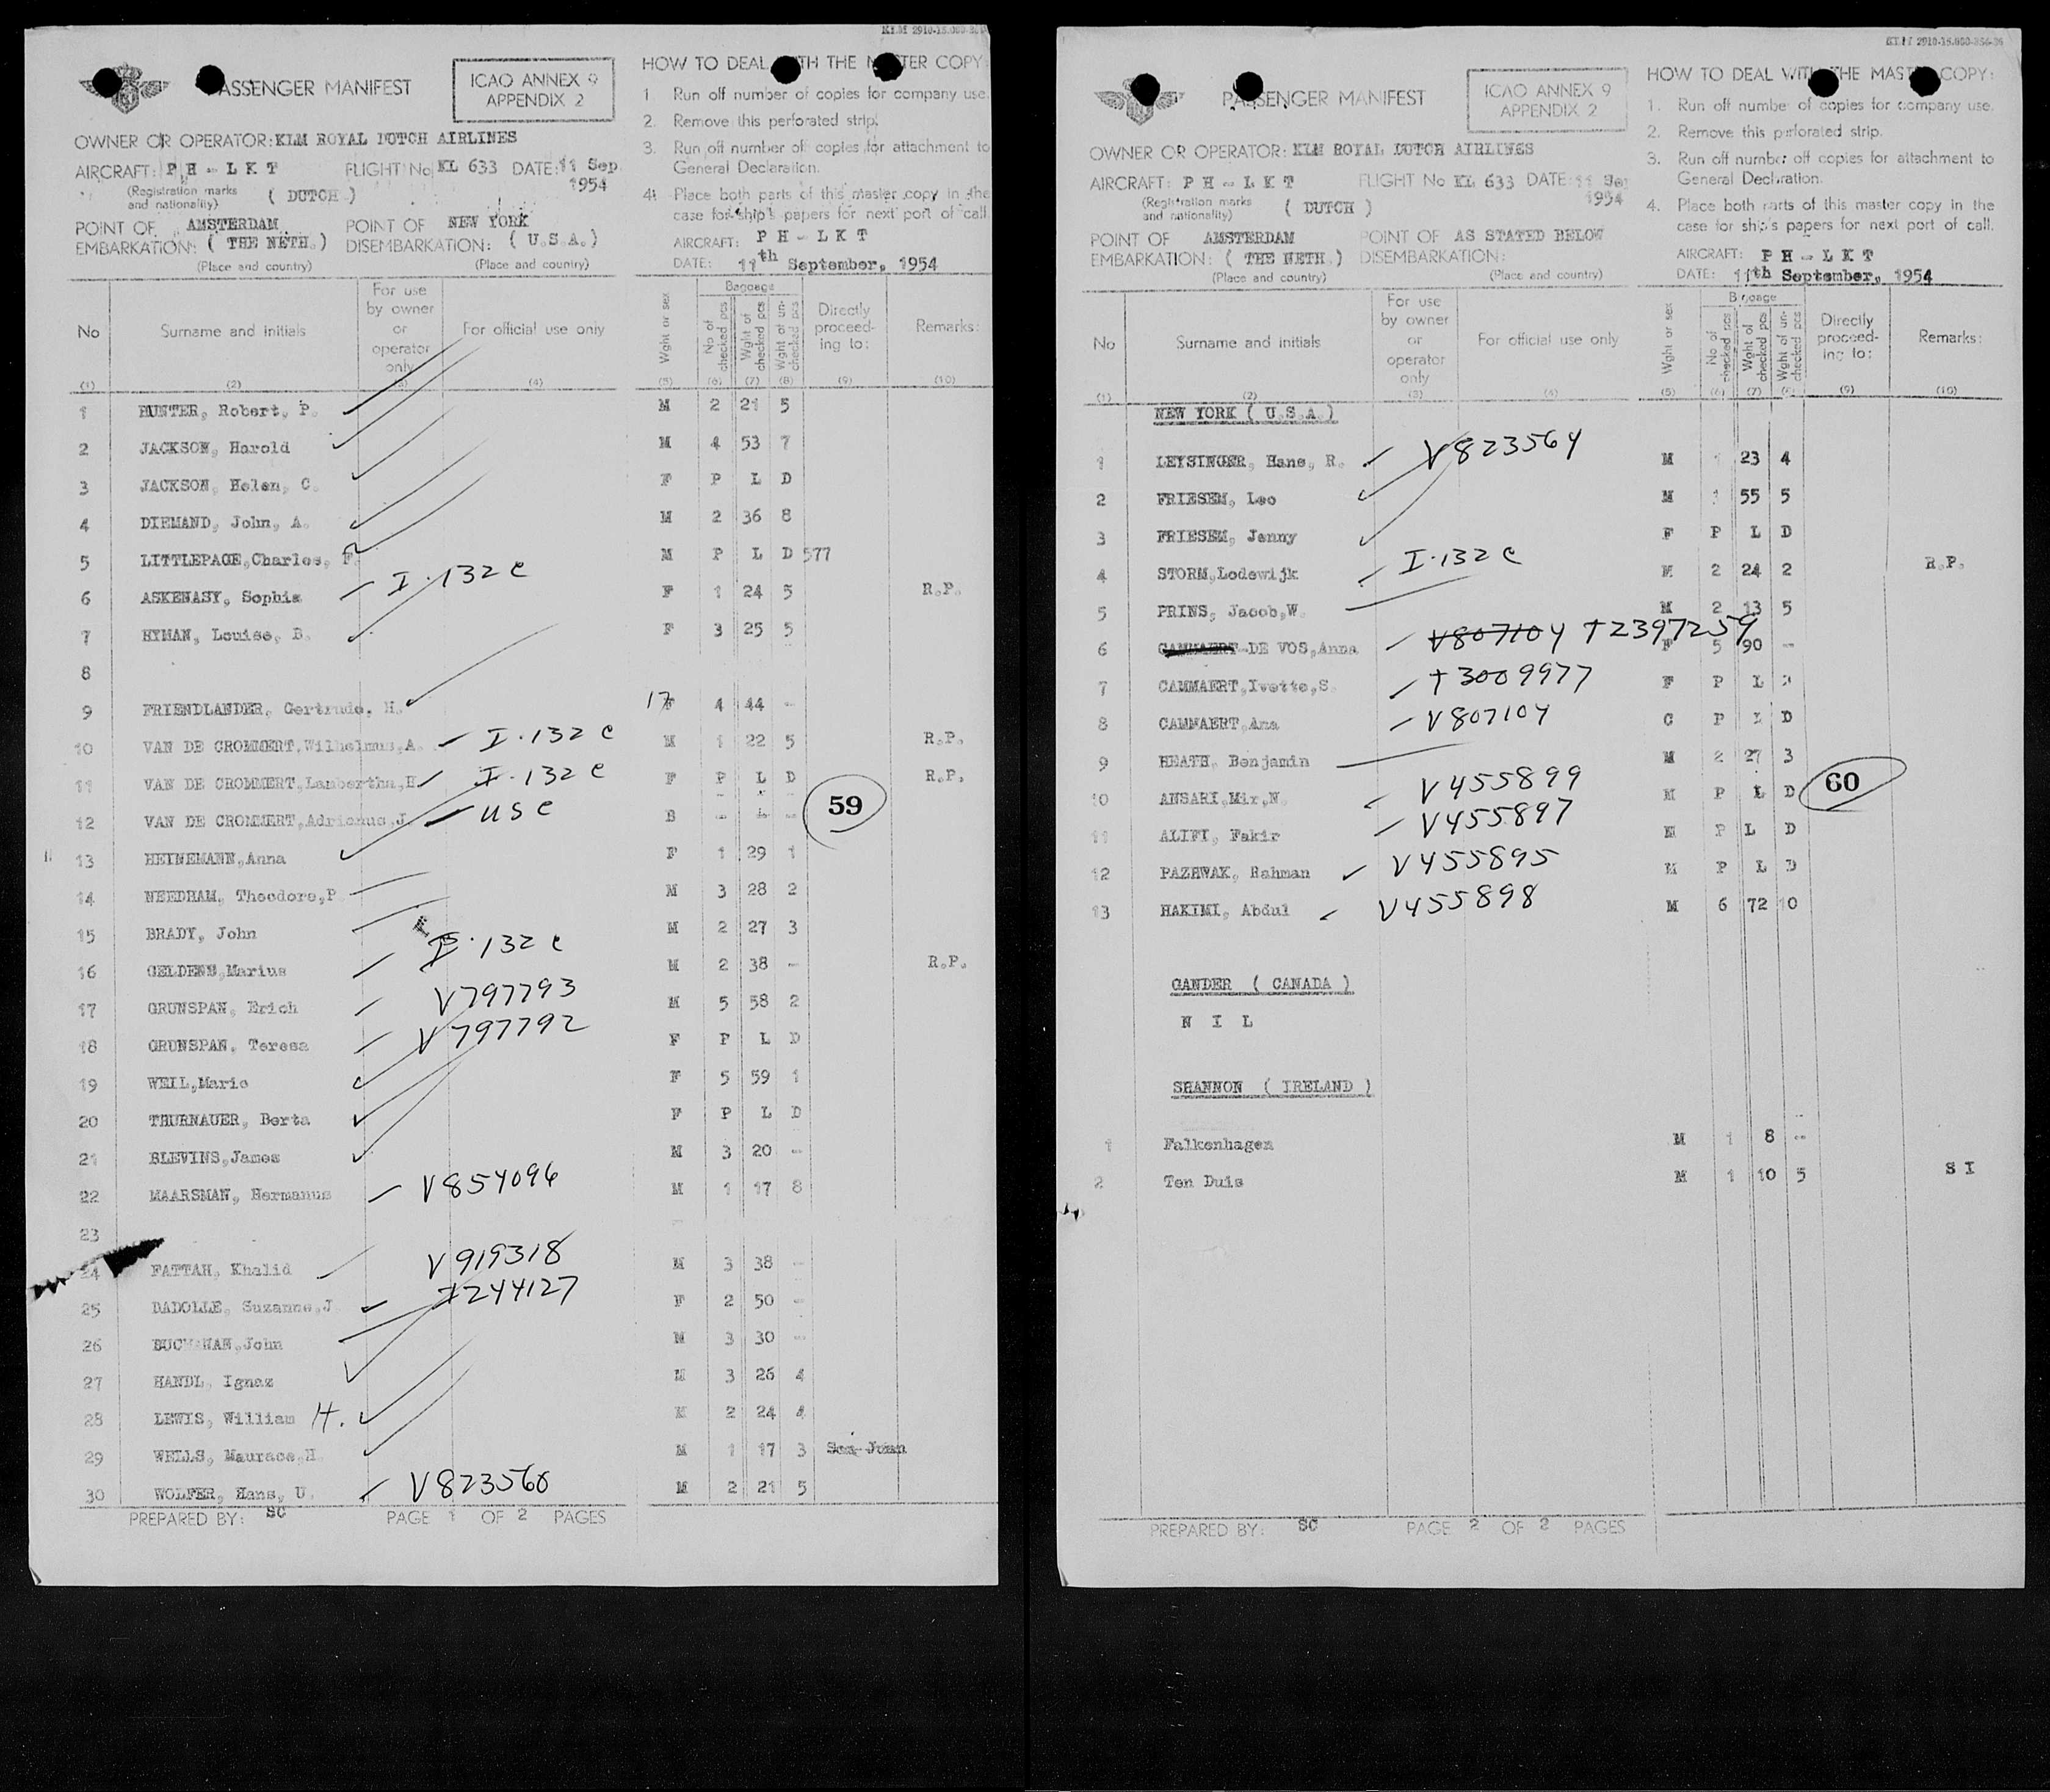 KLM 2910-15.000-354-
PASSENGER MANIFEST
ICAO ANNEX 9
APPENDIX 2
OWNER OR OPERATOR: KLM ROYAL DUTCH AIRLINES
AIRCRAFT: P H - L K T FLIGHT No KL 633 DATE: 11 Sep 1954
(Registration marks and nationality) ( DUTCH )
POINT OF EMBARKATION: AMSTERDAM ( THE NETH. ) POINT OF DISEMBARKATION: NEW YORK ( U.S.A. )
(Place and country) (Place and country)
HOW TO DEAL WITH THE MASTER COPY:
1 Run off number of copies for company use.
2. Remove this perforated strip.
3. Run off number of copies for attachment to
General Declaration.
4. Place both parts of this master copy in the
case for ship's papers for next port of call.
AIRCRAFT: P H - L K T
DATE: 11th September, 1954
No Surname and initials For use by owner or operator only For official use only Wght or sex Baggage No of checked pcs Wght of checked pcs Wght of un-checked pcs Directly proceed-ing to: Remarks:
(1) (2) (3) (4) (5) (6) (7) (8) (9) (10)
1 HUNTER, Robert, P. M 2 21 5
2 JACKSON, Harold M 4 53 7
3 JACKSON, Helen, C. F P L D
4 DIEMAND, John, A. M 2 36 8
5 LITTLEPAGE,Charles, F. M P L D 577
6 ASKENASY, Sophia I.132 c F 1 24 5 R.P.
7 HYMAN, Louise, B. F 3 25 5
8
9 FRIENDLANDER, Gertrude, H. 17 F 4 44 -
10 VAN DE CROMMERT,Wilhelmus,A. I.132 c M 1 22 5 R.P.
11 VAN DE CROMMERT,Lambertha,H. I.132 c F P L D R.P.
12 VAN DE CROMMERT,Adrianus,J. USC B - - -
59
13 HEINEMANN,Anna F 1 29 1
14 NEEDHAM, Theodore,P. M 3 28 2
15 BRADY, John M 2 27 3
16 GELDENS,Marius I.132 c M 2 38 - R.P.
17 GRUNSPAN, Erich V797793 M 5 58 2
18 GRUNSPAN, Teresa V797792 F P L D
19 WEIL,Marie F 5 59 1
20 THURNAUER, Berta F P L D
21 BLEVINS,James M 3 20 -
22 MAARSMAN, Hermanus V854096 M 1 17 8
23
24 FATTAH, Khalid V919318 M 3 38 -
25 DADOLLE, Suzanne,J. I244127 F 2 50 -
26 BUCHANAN,John M 3 30 -
27 HANDL, Ignaz M 3 26 4
28 LEWIS, William H. M 2 24 4
29 WELLS, Maurace,H. M 1 17 3 San Juan
30 WOLFER, Hans, U. V823560 M 2 21 5
PREPARED BY: SC PAGE 1 OF 2 PAGES
KLM 2910-15.000-354-36
PASSENGER MANIFEST
ICAO ANNEX 9
APPENDIX 2
OWNER OR OPERATOR: KLM ROYAL DUTCH AIRLINES
AIRCRAFT: P H - L K T FLIGHT No KL 633 DATE: 11 Sep 1954
(Registration marks and nationality) ( DUTCH )
POINT OF EMBARKATION: AMSTERDAM ( THE NETH. ) POINT OF DISEMBARKATION: AS STATED BELOW
(Place and country) (Place and country)
HOW TO DEAL WITH THE MASTER COPY:
1. Run off number of copies for company use.
2. Remove this perforated strip.
3. Run off number off copies for attachment to
General Declaration.
4. Place both parts of this master copy in the
case for ship's papers for next port of call.
AIRCRAFT: P H - L K T
DATE: 11th September, 1954
No Surname and initials For use by owner or operator only For official use only Wght or sex Baggage No of checked pcs Wght of checked pcs Wght of un-checked pcs Directly proceed-ing to: Remarks:
(1) (2) (3) (4) (5) (6) (7) (8) (9) (10)
NEW YORK ( U.S.A. )
1 LEYSINGER, Hans, R. V823564 M 1 23 4
2 FRIESEM, Leo M 1 55 5
3 FRIESEM, Jenny F P L D
4 STORM,Lodewijk I.132 c M 2 24 2 R.P.
5 PRINS, Jacob,W. M 2 13 5
6 CAMMAERT-DE VOS,Anna V807104 T2397259 F 5 90 -
7 CAMMAERT,Ivette,S. T3009977 F P L D
8 CAMMAERT,Ana V807104 C P L D
9 HEATH, Benjamin M 2 27 3
60
10 ANSARI,Mir,N. V455899 M P L D
11 ALIFI, Fakir V455897 M P L D
12 PAZHWAK, Rahman V455895 M P L D
13 HAKIMI, Abdul V455898 M 6 72 10
GANDER ( CANADA )
N I L
SHANNON ( IRELAND )
1 Falkenhagen M 1 8 -
2 Ten Duis M 1 10 5 S I
PREPARED BY: SC PAGE 2 OF 2 PAGES